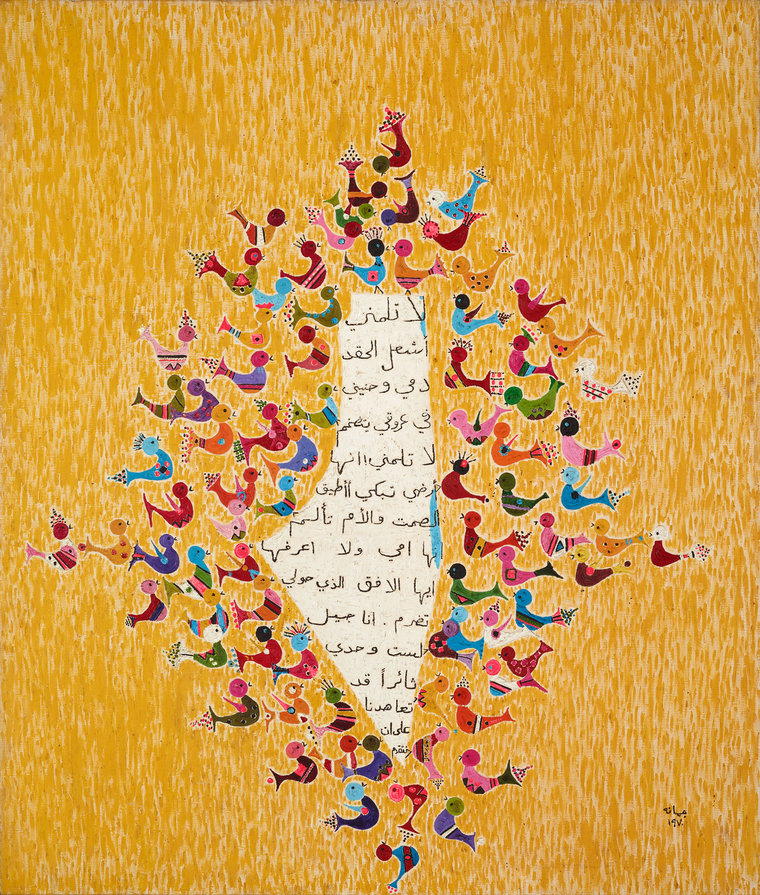 لا تلمني
أشعل الحقد
دمي وحنيني ،
في عروقي
لا تلمني! انها
أرضي تبكي أأطيق
الصمت والأم تألم
انها امي ولا اعرفها
ايها الافق الذي حولي
تضرم . انا جيل
لست وحدي
ثائراً قد
تعاهدنا
على ان
جمانه
١٩٧٠